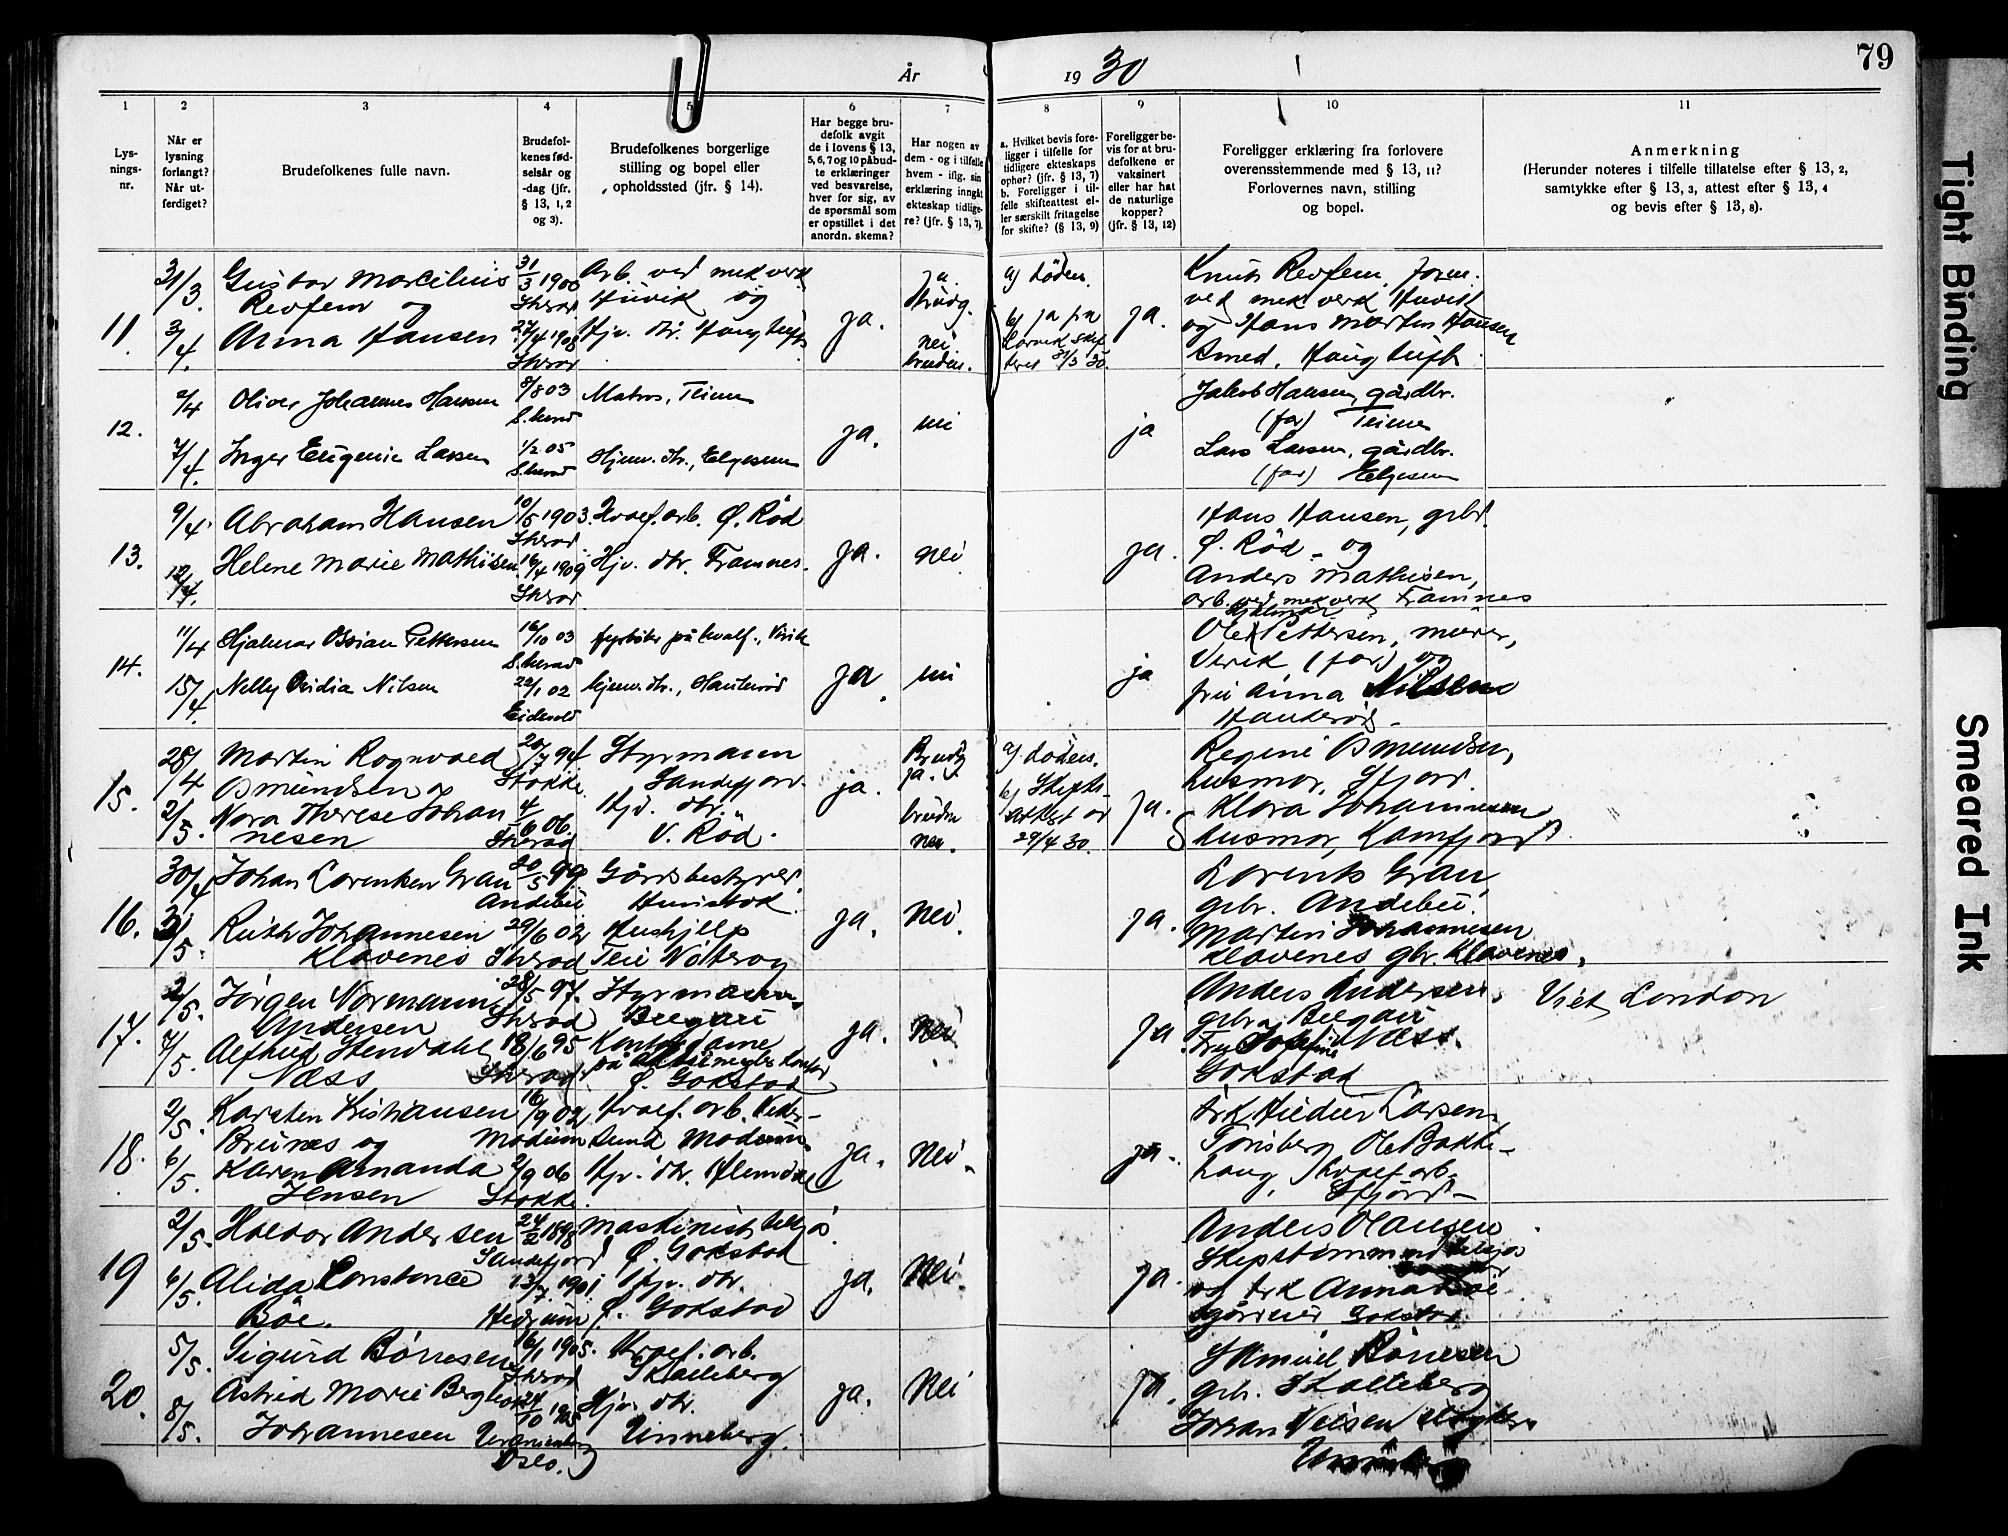 79
År
19 30
1
2
3
4
5
6
7
8
9
10
11
Lys-
nings-
nr.
Når er
lysning
forlangt?
Når ut-
ferdiget?
Brudefolkenes fulle navn.
Brudefol-
kenes fød-
selsår og
-dag (jfr.
§ 13, 1, 2
og 3).
Brudefolkenes borgerlige
stilling og bopel eller
opholdssted (jfr. § 14).
Har begge bru-
defolk avgit
de i lovens § 13,
5, 6, 7 og 10 påbud-
te erklæringer
ved besvarelse,
hver for sig, av
de spørsmål som
er opstillet i det
anordn. skema?
Har nogen av
dem - og i tilfelle
hvem - iflg. sin
erklæring inngåt
ekteskap tidlige-
re? (jfr. § 13, 7).
a. Hvilket bevis fore-
ligger i tilfelle for
tidligere ekteskaps
ophør? (jfr. § 13, 7)
b. Foreligger i til-
felle skifteattest el-
ler særskilt fritagelse
for skifte? (§ 13, 9)
Foreligger be-
vis for at bru-
defolkene er
vaksinert
eller har hat
de naturlige
kopper?
(jfr. § 13, 12)
Foreligger erklæring fra forlovere
overensstemmende med § 13, 11?
Forlovernes navn, stilling
og bopel.
Anmerkning
(Herunder noteres i tilfelle tillatelse efter § 13, 2,
samtykke efter § 13, 3, attest efter § 13, 4
og bevis efter § 13, 8).
11.
31/3.
3/4.
Gustav Marcelius
Revfem og
Anna Hansen
31/3 1900
Skerad
27/4 1908
Skerad
Arb. ved mek verk
Huvik og
Hjv. dtr. Haugtuft
ja.
ja.
Brudg.
nei
bruden.
a) døden.
b) ja fra
Larvik skif
teret 31/3 30.
ja.
Knut Revfem, form.
ved mek verk Huvik
og Hans Martin Hansen
Smed. Haugtuft
12.
2/4
7/4
Oliver Johannes Hansen
Inger Eugenie Larsen
8/8 03
S.herad
1/2 05
S.herad
Matros, Teien
Hjemv. dtr., Elgesem
ja.
nei
ja
Jakob Hansen, gårdbr.
(far) Teien
Lars Larsen, gårdbr.
(far) Elgesem
13.
9/4.
12/4.
Abraham Hansen
Helene Marie Mathisen
10/5 1903.
Skerad
16/4 1909
Skerad
Hvalf. arb. Ø. Rød
Hjv. dtr. Framnes.
ja.
nei
ja.
Hans Hansen, grbr.
Ø. Rød - og
Anders Mathisen,
arb. ved mek verk Framnes
14.
11/4
15/4
Hjalmar Ossian Pettersen
Nelly Ovidia Nilsen
16/10 03
S.herad
22/1 02
Eidsvold
fyrbøter på hvalf., Virik
hjemv. dtr., Hauterød
ja.
nei
ja
Hjalmar
Ole Pettersen, murer,
Virik (far) og
fru Anna Nilsen
Hauterød.
15.
28/4
2/5.
Martin Rognvald
Osmundsen og
Nora Therese Johan
nesen
20/7 94
Stokke.
4/6 06.
Skerad
Styrmann
Sandefjord.
Hjv. dtr.
V. Rød.
ja.
Brudg
ja.
bruden
nei.
a) døden.
b) Skifte-
attest av
29/4 30.
ja.
Regine Osmundsen,
husmor, Sfjord.
Klara Johannesen
husmor, Kamfjord
16.
30/4
3/5.
Johan Lorentzen Gran
Ruth Johannesen
Klavenes
30/5 99
Andebu
29/6 02
Skerad
Gårdsbestyrer.
Hunstok.
Hushjelp
Teie Nøterøy
ja.
Nei.
ja.
Lorents Gran,
gbr. Andebu.
Martin Johannesen
Klavenes gbr. Klavenes.
17.
2/5.
7/5.
Jørgen Normann
Andersen
Alfhild Stendahl
Næss
28/5 97.
Skerad
18/6 95
Skerad
Styrmann
Bugaii
Kontordame
Ø. Gokstad
ja.
Nei
ja
Anders Andersen,
Fru Josefine Næss.
Gokstad
Viet, London
18.
2/5.
6/5.
Karsten Kristiansen
Brunæs og
Karen Amanda
Jensen
16/9 02
Modum
2/9 06
Stokke
Hvalf. arb. Vider-
sund Modum
Hjv. dtr. Hemdal
ja.
Nei.
ja.
Larsen
Tønsberg Ole Bakke-
haug, Hvalf. arb.
Sfjord
19
2/5.
6/5.
Halvor Andersen
Alida Constance
Bøe.
24/2 1898
Sandefjord
13/7 1901
Hedrum
Maskinist
Ø. Gokstad
Hjv. dtr.
Ø. Gokstad
ja.
Nei.
ja.
Anders Hansen
Skipstømmermand
og Anna Bøe
Gokstad.
20.
5/5.
8/5.
Sigurd Børresen
Astrid Marie Berglioth
Johannesen
16/1 1905.
Skerad
24/10 1905
Uranienborg
Oslo.
Hvalf. arb.
Skalleberg
Hjv. dtr.
Unneberg.
ja.
Nei
ja.
Samuel Børresen
grb. Skalleberg
Johan Nilsen
Unneberg
Tight Binding
Smeared Ink